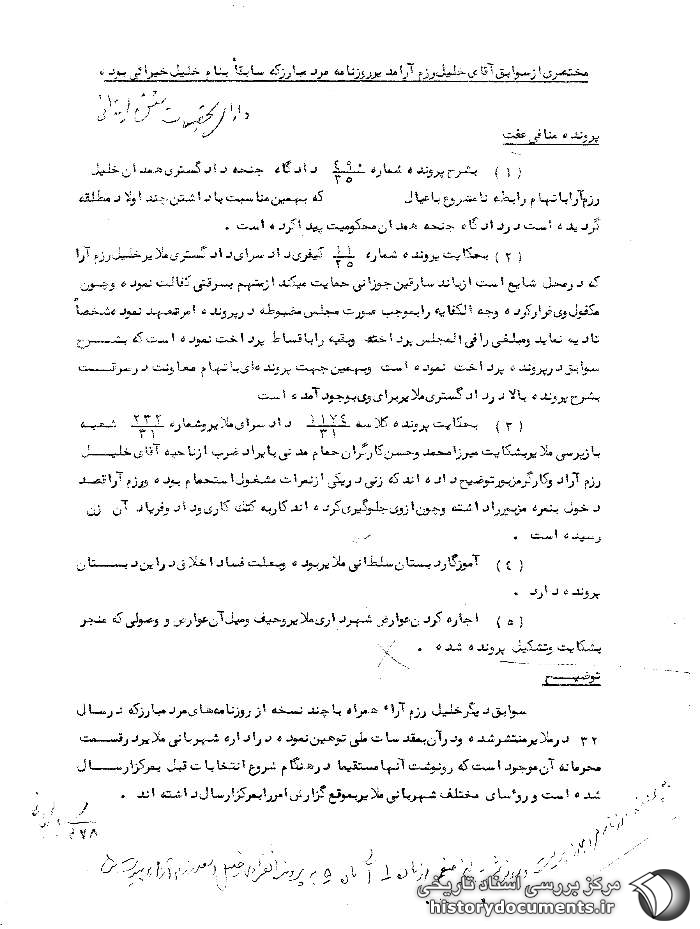 مختصری از سوابق آقای خلیل رزم آرا مدیر روزنامه مرد مبارز که سابقاً بنام خلیل خیراتی بوده
دارای تحصیلات شش ابتدائی
پرونده منافی عفت
(۱) بشرح پرونده شماره ۴۹/۳۵ دادگاه جنحه دادگستری همدان خلیل
رزم آرا باتهام رابطه نامشروع باعیال که بهمین مناسبت باداشتن چند اولاد مطلقه
گردیده است در دادگاه جنحه همدان محکومیت پیدا کرده است .
(۲) بحکایت پرونده شماره کیفری دادسرای دادگستری ملایر خلیل رزم آرا
که درمحل شایع است ازباند سارقین جوزانی حمایت میکند ازمتهم بسرقتی کفالت نموده وچون
مکفول وی فرارکرده وجه الکفایه رابموجب صورت مجلس مضبوطه درپرونده امرتعهد نموده شخصاً
تادیه نماید ومبلغی رافی المجلس پرداخته وبقیه راباقساط پرداخت نموده است که بشرح
سوابق درپرونده پرداخت نموده است وبهمین جهت پرونده ای باتهام معاونت درسرقت
بشرح پرونده بالا در دادگستری ملایر برای وی بوجود آمده است
(۳) بحکایت پرونده کلاسه ۱۱۷۴/۳۱ دادسرای ملایر وشماره ۲۳۲/۳۱ شعبه
بازپرسی ملایر بشکایت میرزامحمد وحسن کارگران حمام مدنی بایراد ضرب ازناحیه آقای خلیل
رزم آرا دوکارگر مزبور توضیح داده اند که زنی دریکی ازنمرات مشغول استحمام بوده ورزم آرا قصد
دخول بنمره مزبور راداشته وچون ازوی جلوگیری کرده اند کاربه کتک کاری ودادوفریاد آن زن
رسیده است .
(۴) آموزگار دبستان سلطانی ملایر بوده وبعلت فساد اخلاقی دراین دبستان
پرونده دارد .
(۵) اجاره کردن عوارض شهرداری ملایر وحیف ومیل آن عوارض و وصولی که منجر
بشکایت وتشکیل پرونده شده .
توضیح
سوابق دیگر خلیل رزم آراء همراه باچند نسخه از روزنامه های مرد مبارز که درسال
۳۲ درملایر منتشر شده ودرآن بمقدسات ملی توهین نموده دراداره شهربانی ملایر درقسمت
محرمانه آن موجود است که رونوشت آنها مستقیما درهنگام شروع انتخابات قبل بمرکز ارسال
شده است و روسای مختلف شهربانی ملایر بموقع گزارش امر رابمرکز ارسال داشته اند .
مرکز بررسی اسناد تاریخی
historydocuments.ir